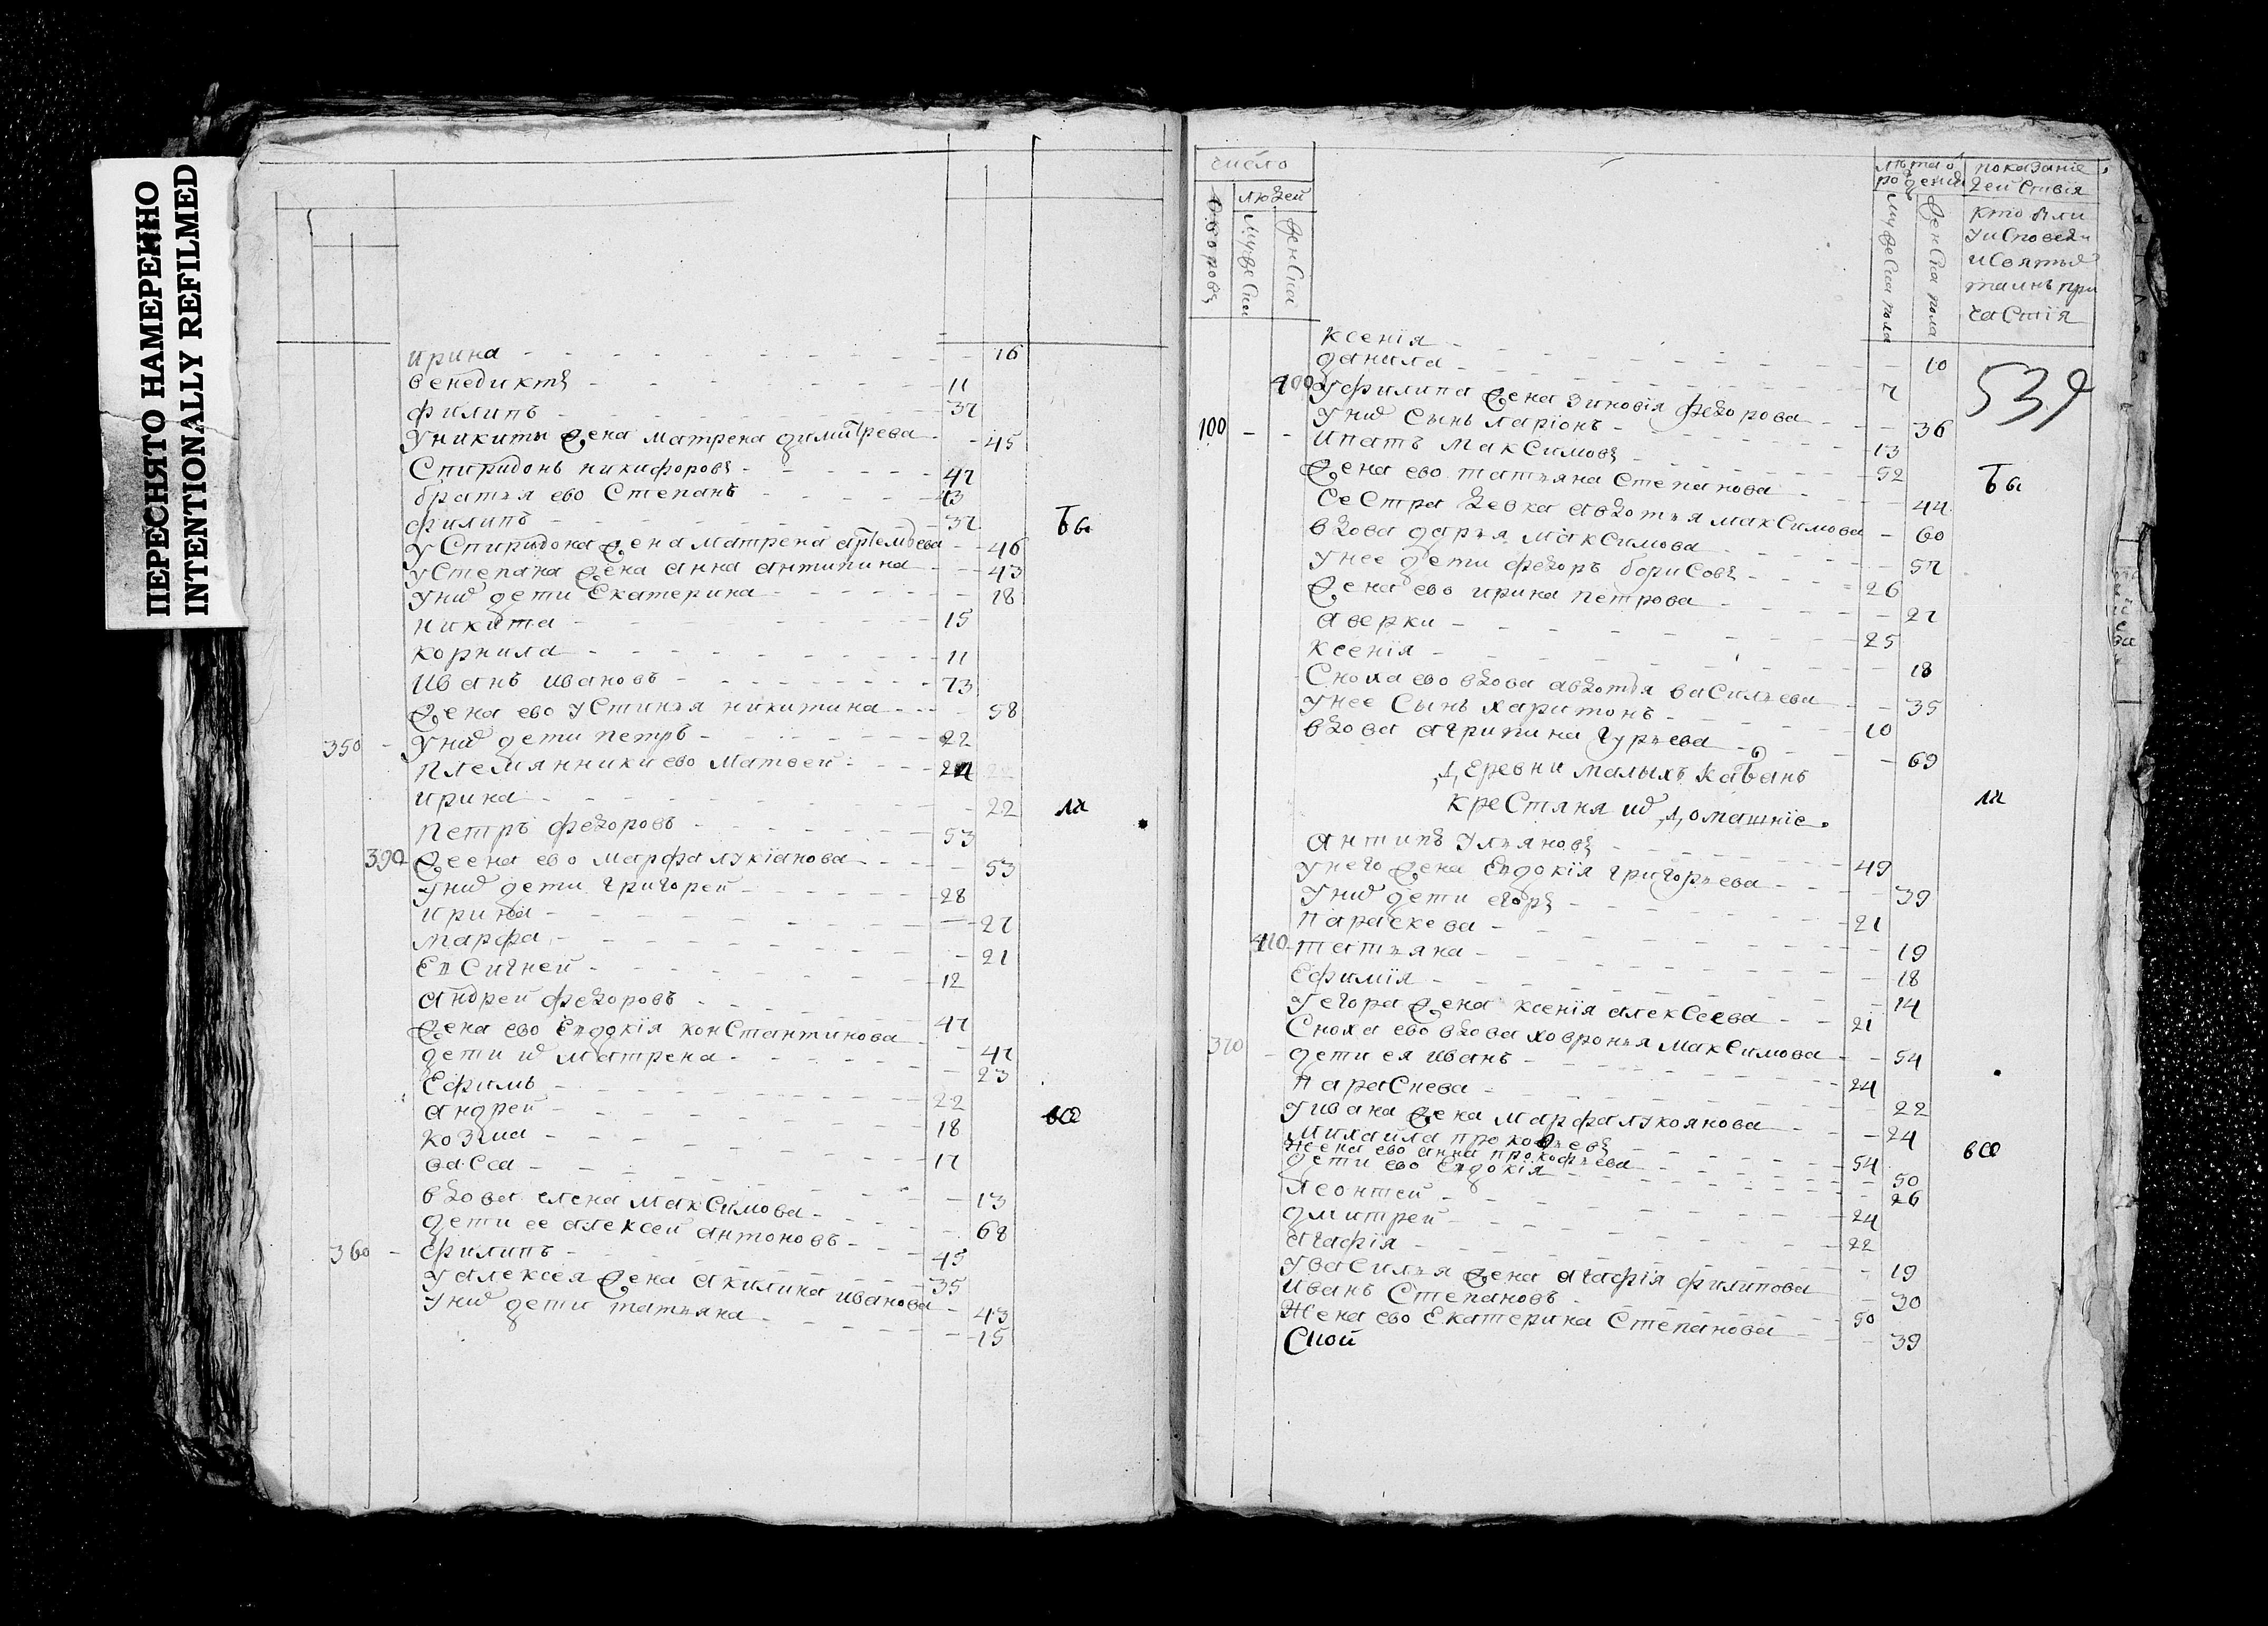 ПЕРЕСНЯТО НАМЕРЕННО
INTENTIONALLY REFILMED
ирина 16
венедиктъ 11
филипъ 37
у никиты жена матрена димитрева 45
Спиридонъ никифоровъ 47
братья ево Степанъ 43
филипъ 37
у Спиридона жена матрена артемьева 46
бы
у Степана жена анна антипина 43
у них дети Екатерина 18
никита 15
корнила 11
иванъ ивановъ 73
жена ево устинья никитина 58
350 у них дети петръ 22
племянники ево матвей 24
ирина 22
ли
петръ федоровъ 53
390 жеена ево марфа лукіанова 53
у них дети григорей 28
ирина 27
марфа 21
Евсигней 12
андрей федоровъ 47
жена ево Евдокія константинова 47
дети их матрена 23
Ефимъ 22
андрей 18
все
козма 17
васса 13
вдова елена максимова 68
дети ее алексей антоновъ 45
360 филипъ 35
у алексея жена акилина иванова 43
у них дети татьяна 15
число
дворовъ
людей
мужеска
женска
лѣта от рожденія
мужеска пола
женска пола
показаніе действія
кто были
у исповеди
и святых
таинъ при
частія
539
ксенія 10
данила 7
400 у филипа жена зиновія федорова 36
у них сынъ ларіонъ 13
100 ипатъ максимовъ 52
жена ево татьяна степанова 44
бы
сестра девка авдотья максимова 60
вдова дарья максимова 57
у нее дети федоръ борисовъ 26
жена ево ирина петрова 27
аверки 25
ксенія 18
Сноха ево вдова авдотья васильева 35
у нее сынъ харитонъ 10
вдова агрипина гурьева 69
деревни малыхъ кабанъ
крестяня их домашніе
ли
антипъ ульяновъ 49
у него жена Евдокія григорьева 39
у них дети егоръ 21
параскева 19
410 татьяна 18
Ефимія 14
у егора жена ксенія алексеева 21
Сноха ево вдова ховронья максимова 54
370 дети ея иванъ 24
параскева 22
у ивана жена марфа лукоянова 24
михайла прокофьевъ 54
жеена ево анна прокофьева 50
все
дети ево Евдокія 26
леонтей 24
дмитрей 22
агафія 19
у василья жена агафія филипова 30
иванъ Степановъ 50
Жена ево Екатерина Степанова 39